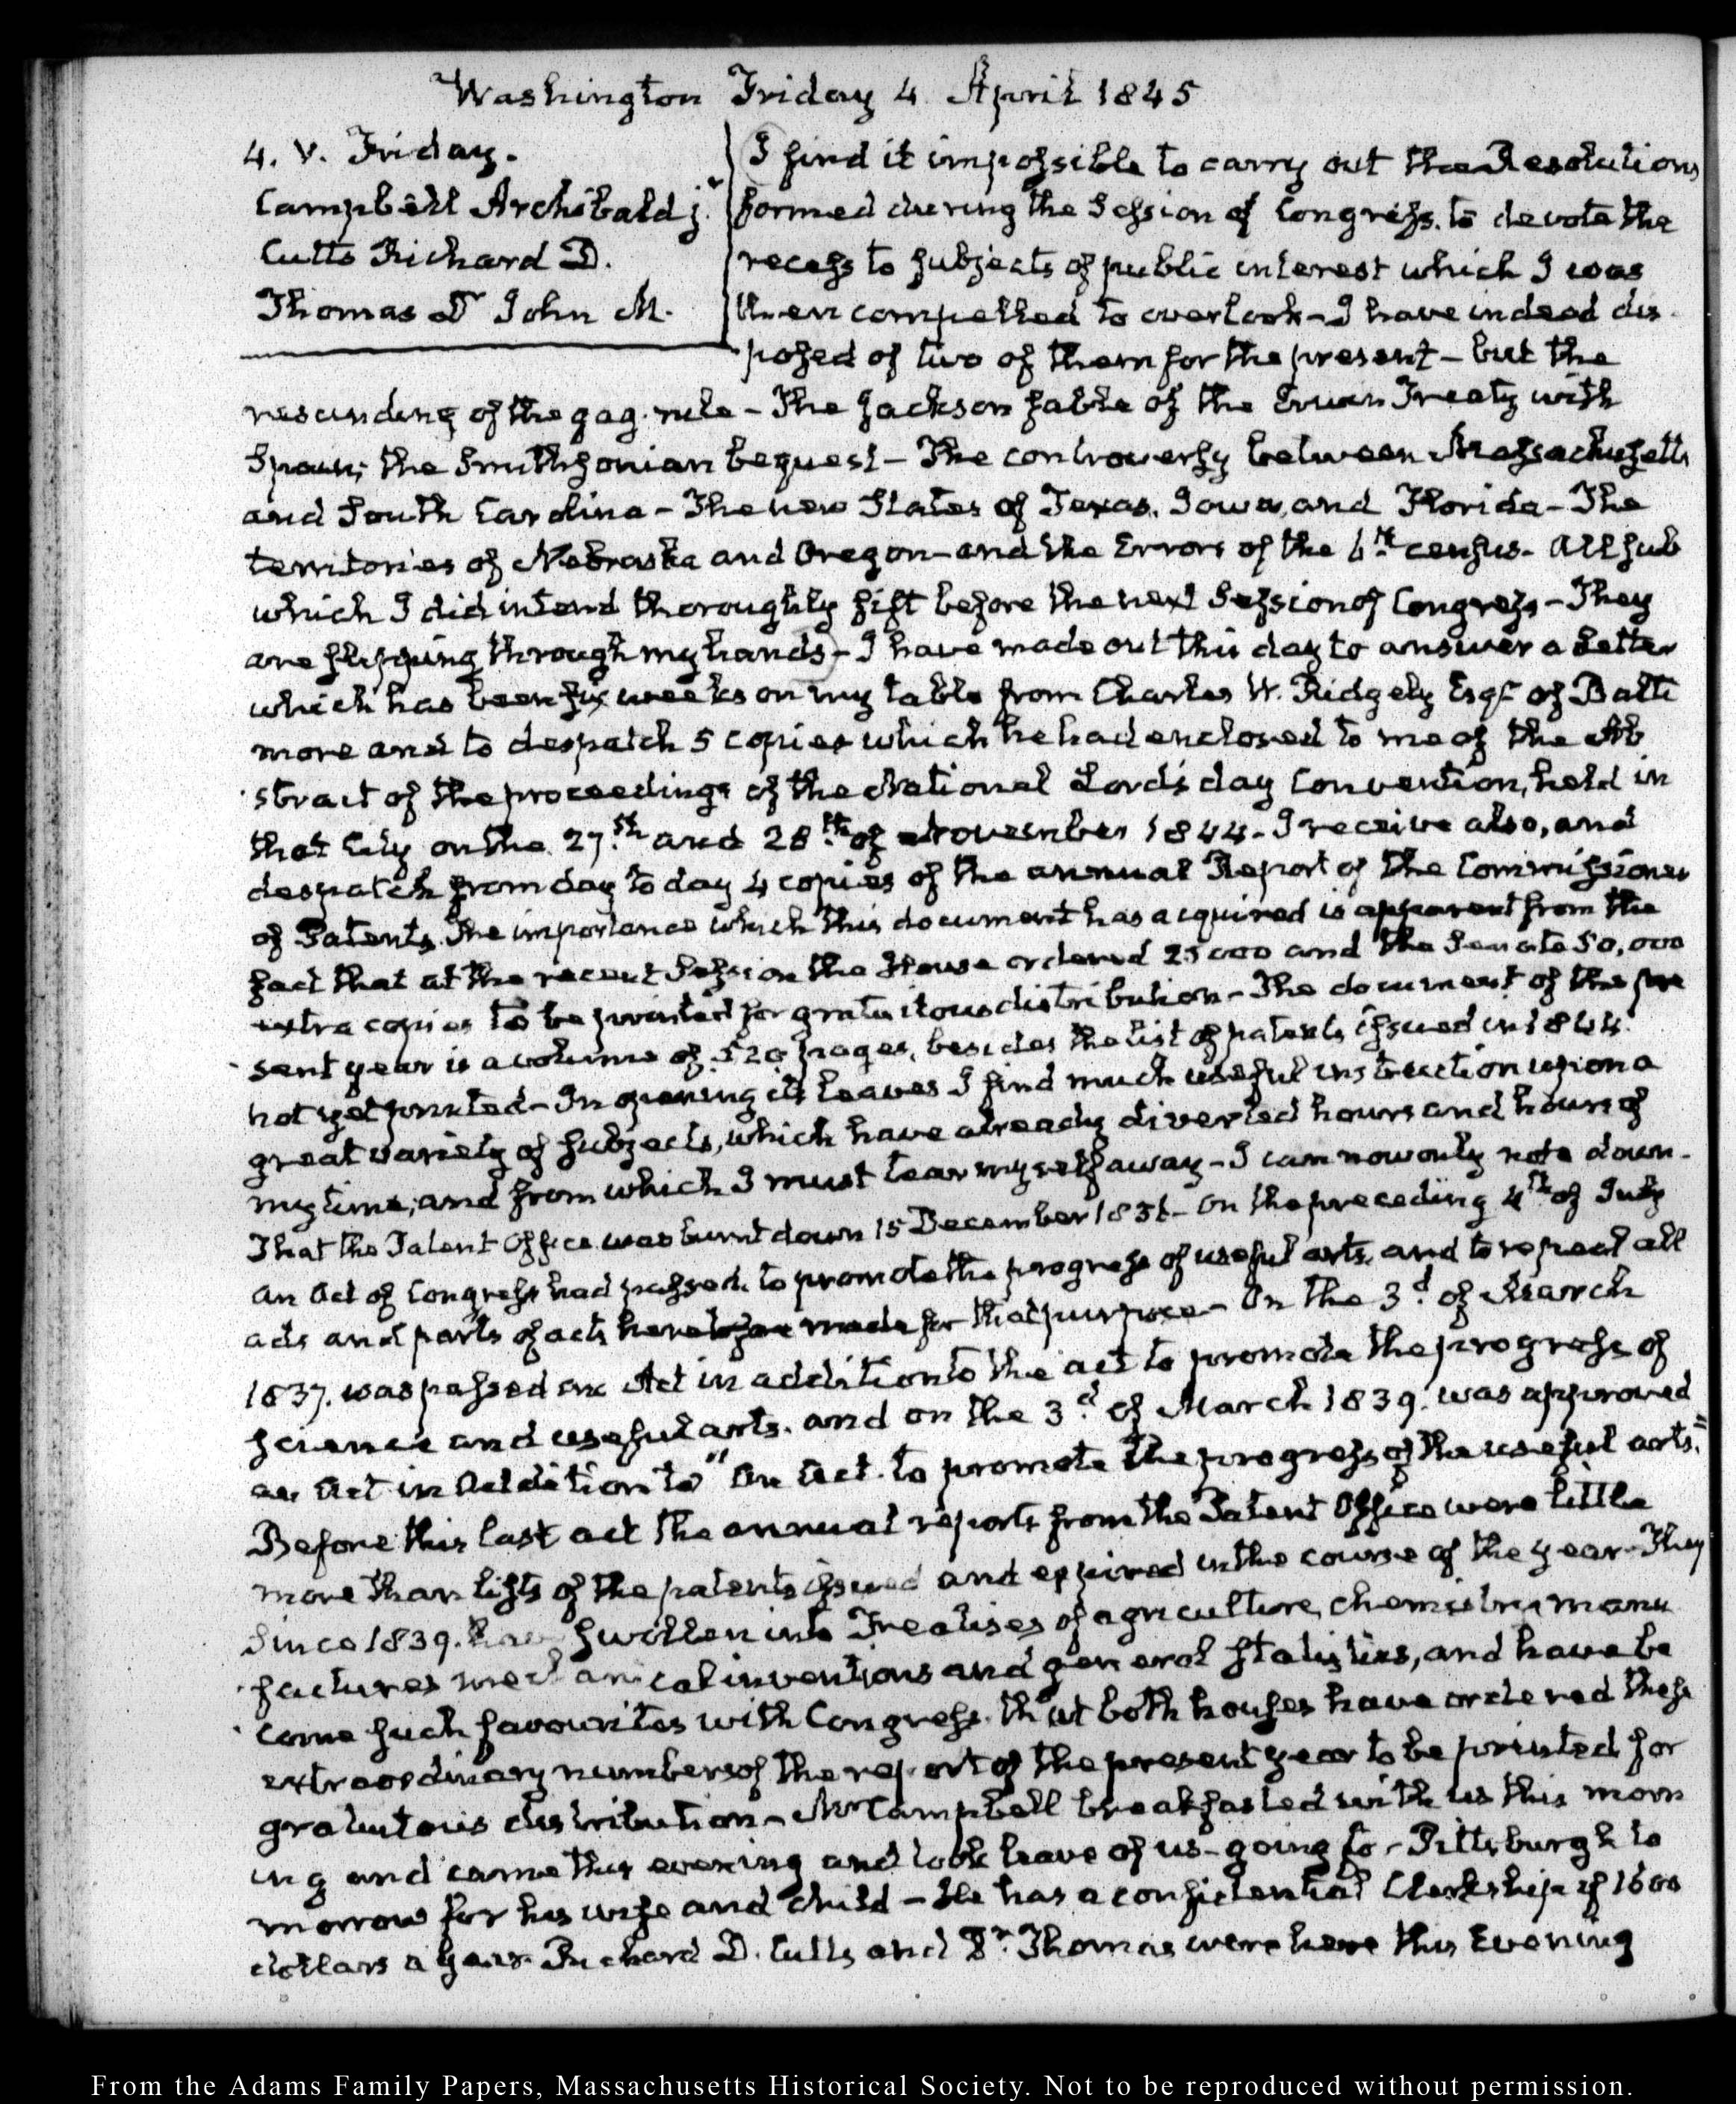 Washington Friday 4. April 1845
4. V. Friday.
Campbell Archibald jr.
Cutts Richard D.
Thomas Dr John M.
I find it impossible to carry out the Resolutions
formed during the Session of Congress, to devote the
recess to subjects of public interest which I was
then compelled to overlook – I have indeed dis-
posed of two of them for the present – but the
rescinding of the gag-rule – The Jackson fable of the Erwin Treaty with
Spain; the Smithsonian bequest – The controversy between Massachusetts
and South Carolina – The new States of Texas, Iowa, and Florida – The
territories of Nebraska and Oregon – and the Errors of the 6th census – All sub
which I did intend thoroughly sift before the next Session of Congress – They
are slipping through my hands – I have made out this day to answer a Letter
which has been six weeks on my table from Charles W. Ridgely Esqr of Balti
more and to despatch 5 copies which he had enclosed to me of the Ab
stract of the proceedings of the National Lord's day Convention, held in
that City on the 27th and 28th of November 1844 – I receive also, and
despatch from day to day 4 copies of the annual Report of the Commissioner
of Patents. The importance which this document has acquired is apparent from the
fact that at the recent Session the House ordered 25000 and the Senate 50,000
extra copies to be printed for gratuitous distribution – The document of the pre
sent year is a volume of 520 pages, besides the list of patents issued in 1844.
not yet printed – In opening its leaves I find much useful instruction upon a
great variety of subjects, which have already diverted hours and hours of
my time; and from which I must tear myself away – I can now only note down –
That the Patent Office was burnt down 15 December 1836 – On the preceding 4th of July
an Act of Congress had passed, to promote the progress of useful arts, and to repeal all
acts and parts of acts heretofore made for that purpose – On the 3d of March
1837. was passed an Act in addition to the act to promote the progress of
science and useful arts. and on the 3d of March 1839. was approved
an Act in Addition to "An Act. to promote the progress of the useful arts."
Before this last act the annual reports from the Patent Office were little
more than lists of the patents issued and expired in the course of the year – They
since 1839. have swollen into Treatises of agriculture, chemistry manu
factures mechanical inventions and general statistics, and have be
come such favourites with Congress. that both houses have ordered these
extraordinary numbers of the report of the present year to be printed for
gratuitous distribution – Mr Campbell breakfasted with us this morn
ing and came this evening and took leave of us – going to Pittsburgh to
morrow for his wife and child – He has a confidential Clerkship of 1600
dollars a year. Richard D. Cutts and Dr Thomas were here this Evening
From the Adams Family Papers, Massachusetts Historical Society. Not to be reproduced without permission.